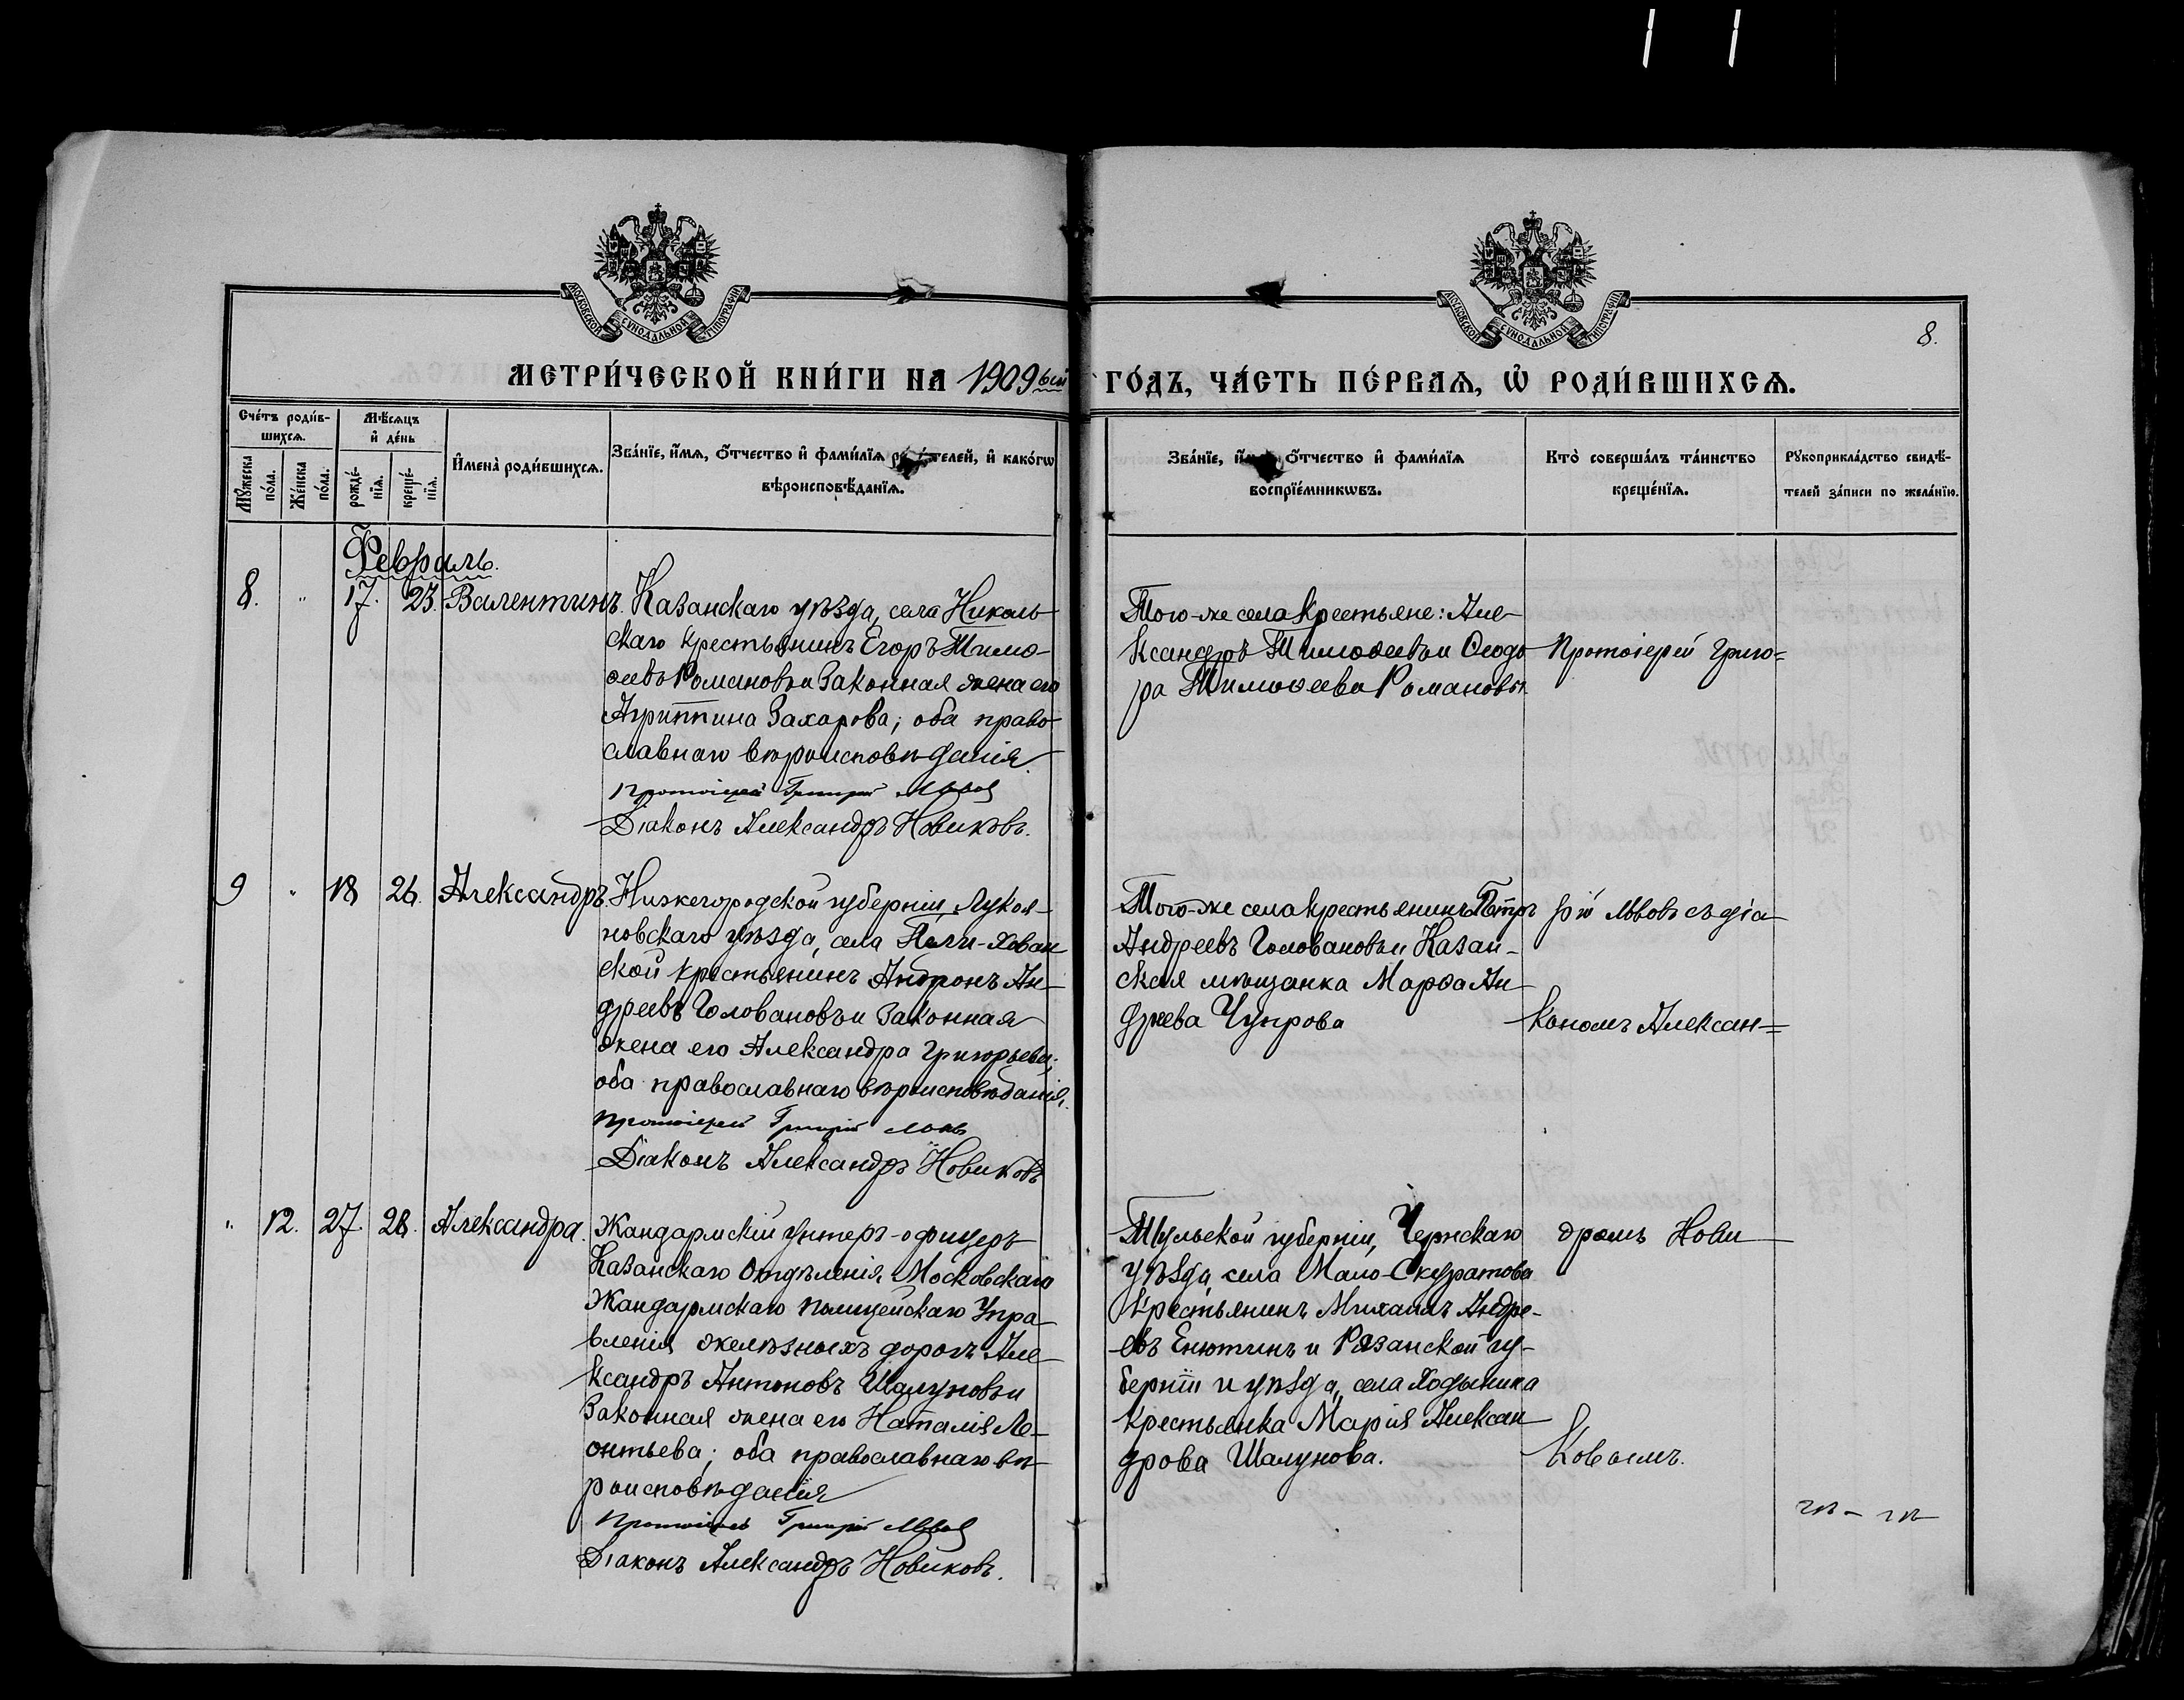 МОСКОВСКОЙ СѴНОДАЛЬНОЙ ТИПОГРАФІИ
МОСКОВСКОЙ СѴНОДАЛЬНОЙ ТИПОГРАФІИ
8.
МЕТРИ́ЧЕСКОЙ КНИ́ГИ НА 1909ый ГО́ДЪ, ЧА́СТЬ ПЕ́РВАѦ, Ѡ҆ РОДИ́ВШИХСѦ.
Сче́тъ роди́в-
шихсѧ.
Мꙋ́жеска по́ла.
Же́нска по́ла.
Мѣ́сѧцъ
и҆ де́нь
рожде́-
нїѧ.
креще́-
нїѧ.
И҆мена̀ роди́вшихсѧ.
Зва́нїе, и҆́мѧ, ѻ҆́тчество и҆ фами́лїѧ роди́телей, и҆ како́гѡ
вѣроисповѣ́данїѧ.
Зва́нїе, и҆́мѧ, ѻ҆́тчество и҆ фами́лїѧ
воспрїе́мникѡвъ.
Кто̀ соверша́лъ та́инство
креще́нїѧ.
Рꙋкоприкла́дство свидѣ́-
телей за́писи по жела́нїю.
Февраль.
8. " 17. 23. Валентинъ.
Казанскаго уѣзда, села Николь-
скаго крестьянинъ Егоръ Тимо-
ѳеевъ Романовъ и законная жена его
Агриппина Захарова; оба право-
славнаго вѣроисповѣданія.
Протоіерей Григорій Львовъ
Діаконъ Александръ Новиковъ.
Того-же села крестьяне: Але-
ксандръ Тимоѳеевъ и Ѳеодо-
ра Тимоѳеева Романовы.
Протоіерей Григо=
9 " 18 26. Александръ.
Нижегородской губерніи, Лукоя-
новскаго уѣзда, села Пели-Хован-
ской крестьянинъ Андронъ Ан-
дреевъ Головановъ и законная
жена его Александра Григорьева;
оба православнаго вѣроисповѣданія.
Протоіерей Григорій Львовъ
Діаконъ Александръ Новиковъ
Того-же села крестьянинъ Петръ
Андреевъ Головановъ и Казан-
ская мѣщанка Марѳа Ан-
дреева Чупрова
рій Львовъ съ діа-
кономъ Алексан=
" 12. 27. 28. Александра.
Жандармскій унтеръ-офицеръ
Казанскаго Отдѣленія Московскаго
Жандармскаго полицейскаго Упра-
вленія желѣзныхъ дорогъ Але-
ксандръ Антоновъ Шалуновъ и
законная жена его Наталія Ле-
онтьева; оба православнаго вѣ-
роисповѣданія
Протоіерей Григорій Львовъ
Діаконъ Александръ Новиковъ.
Тульской губерніи, Чернскаго
уѣзда, села Мало-Скуратова
крестьянинъ Михаилъ Андре-
евъ Енютинъ и Рязанской гу-
берніи и уѣзда, села Ходынина
крестьянка Марія Алексан-
дрова Шалунова.
дромъ Нови-
ковымъ.